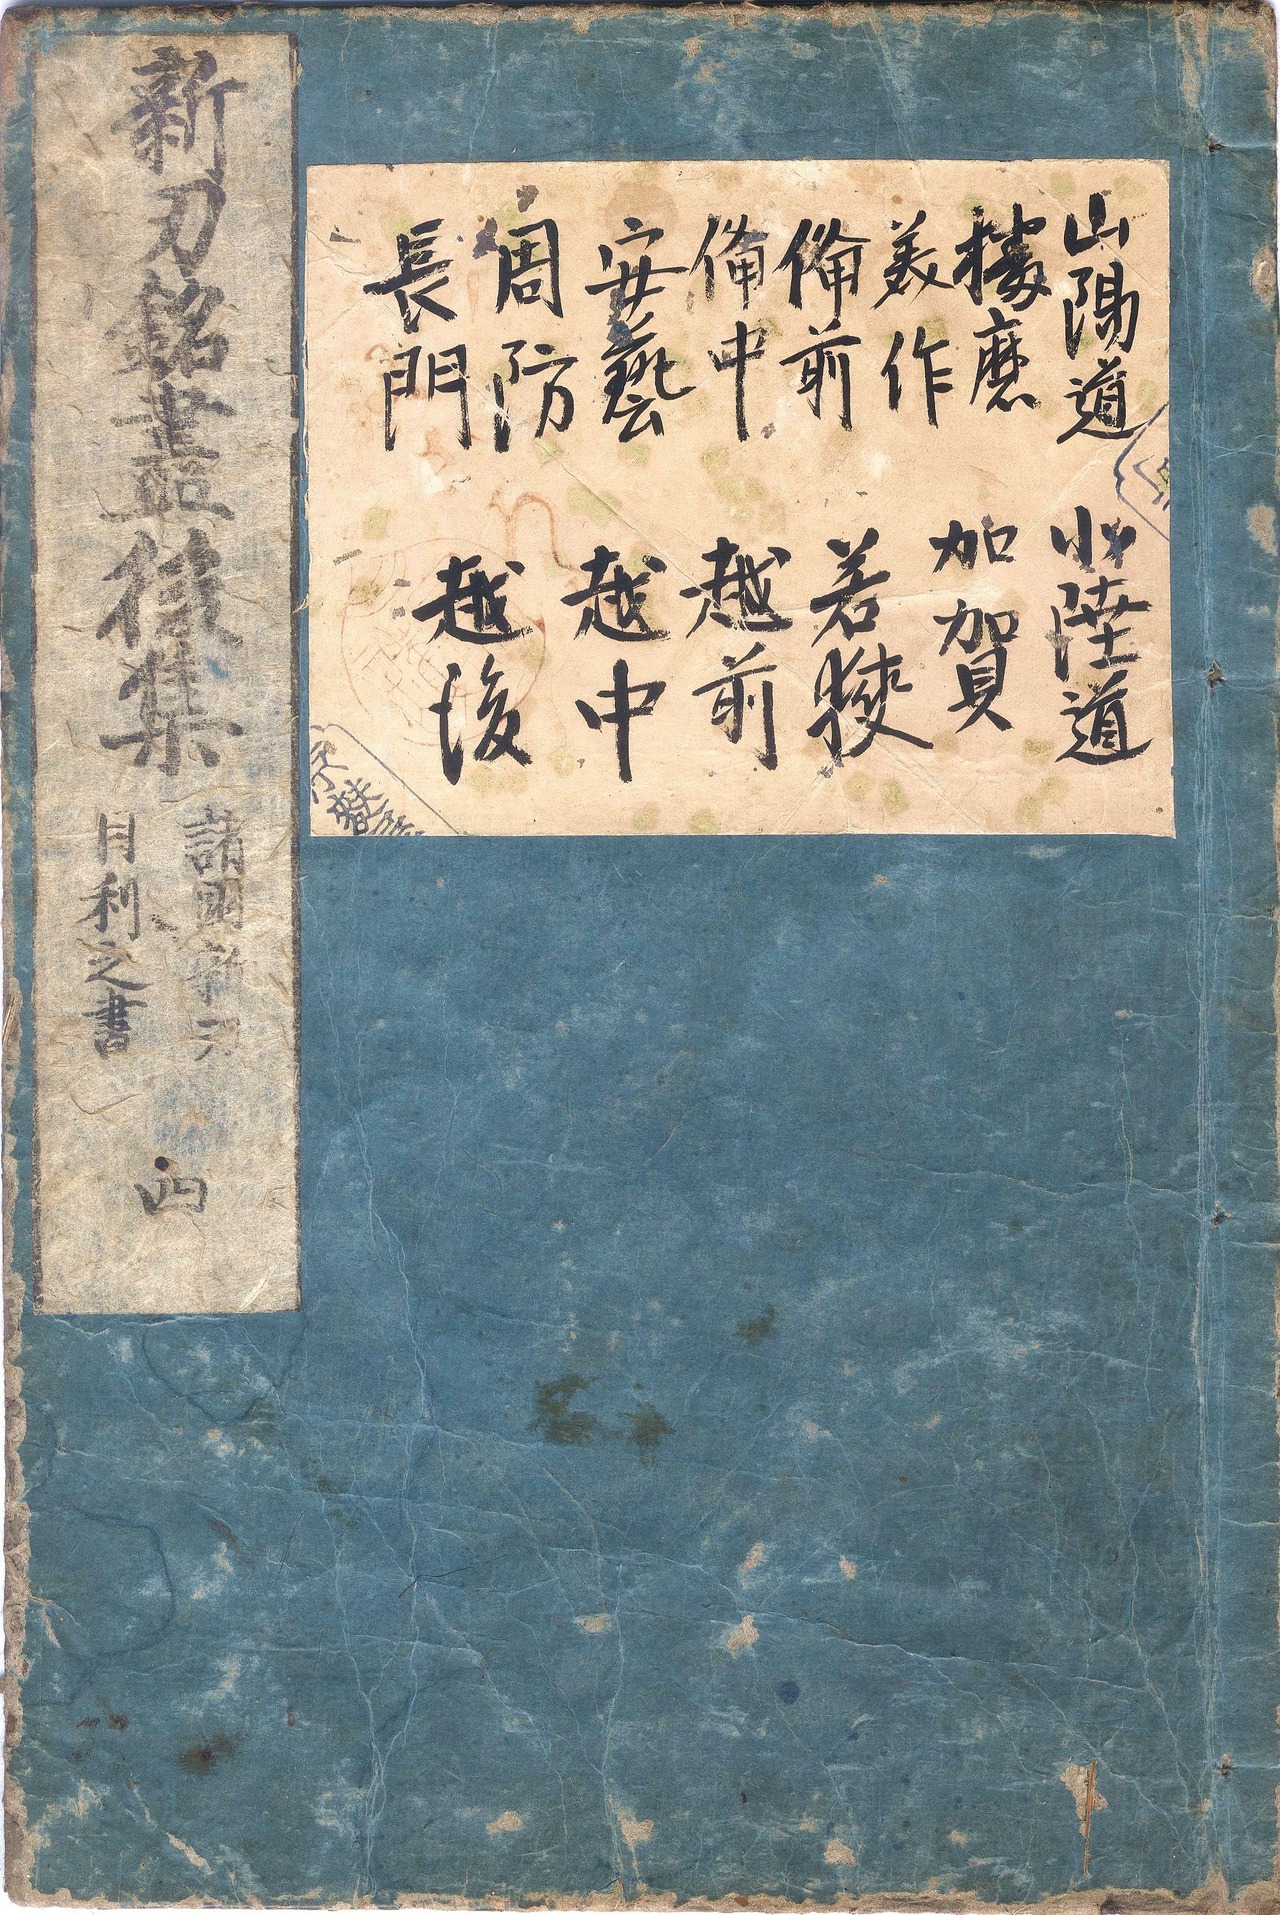 新刀銘盡後集
諸國新刀
目利之書
四
山陽道
播磨
美作
備前
備中
安藝
周防
長門
北陸道
加賀
若狹
越前
越中
越後